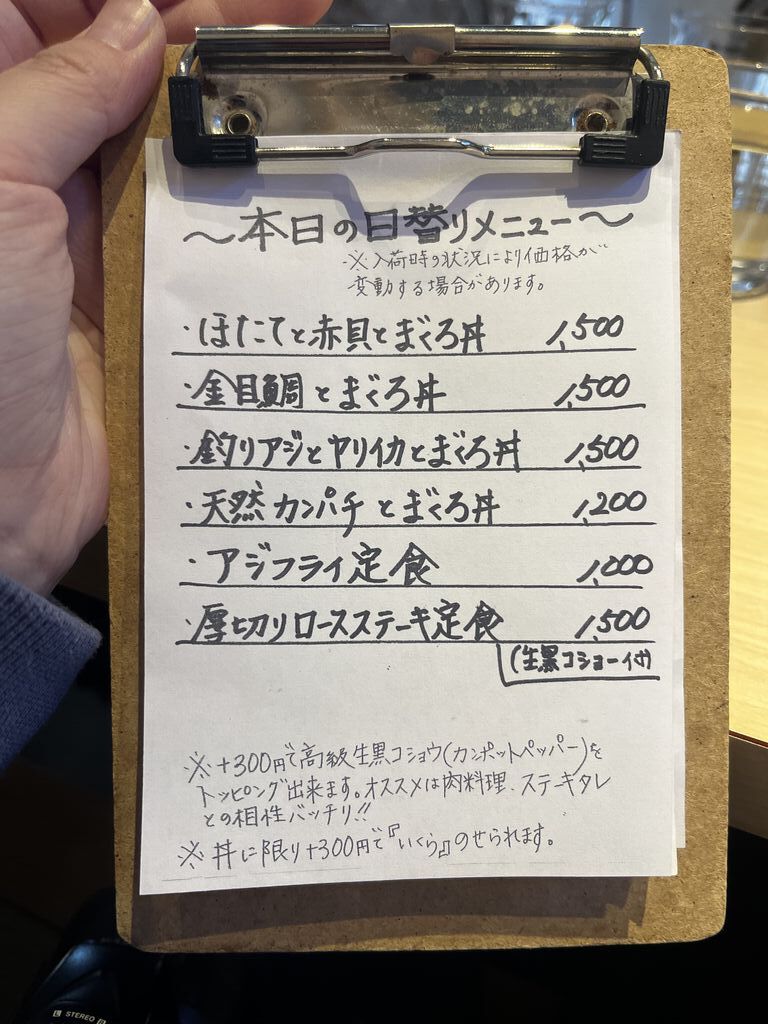 ～本日の日替りメニュー～
※入荷時の状況により価格が
変動する場合があります。
・ほたてと赤貝とまぐろ丼 1,500
・金目鯛とまぐろ丼 1,500
・釣りアジとヤリイカとまぐろ丼 1,500
・天然カンパチとまぐろ丼 1,200
・アジフライ定食 1,000
・厚切りロースステーキ定食 1,500
(生黒コショー付)
※+300円で高級生黒コショウ(カンポットペッパー)を
トッピング出来ます。オススメは肉料理、ステーキタレ
との相性バッチリ!!
※丼に限り+300円で『いくら』のせられます。
L STEREO R